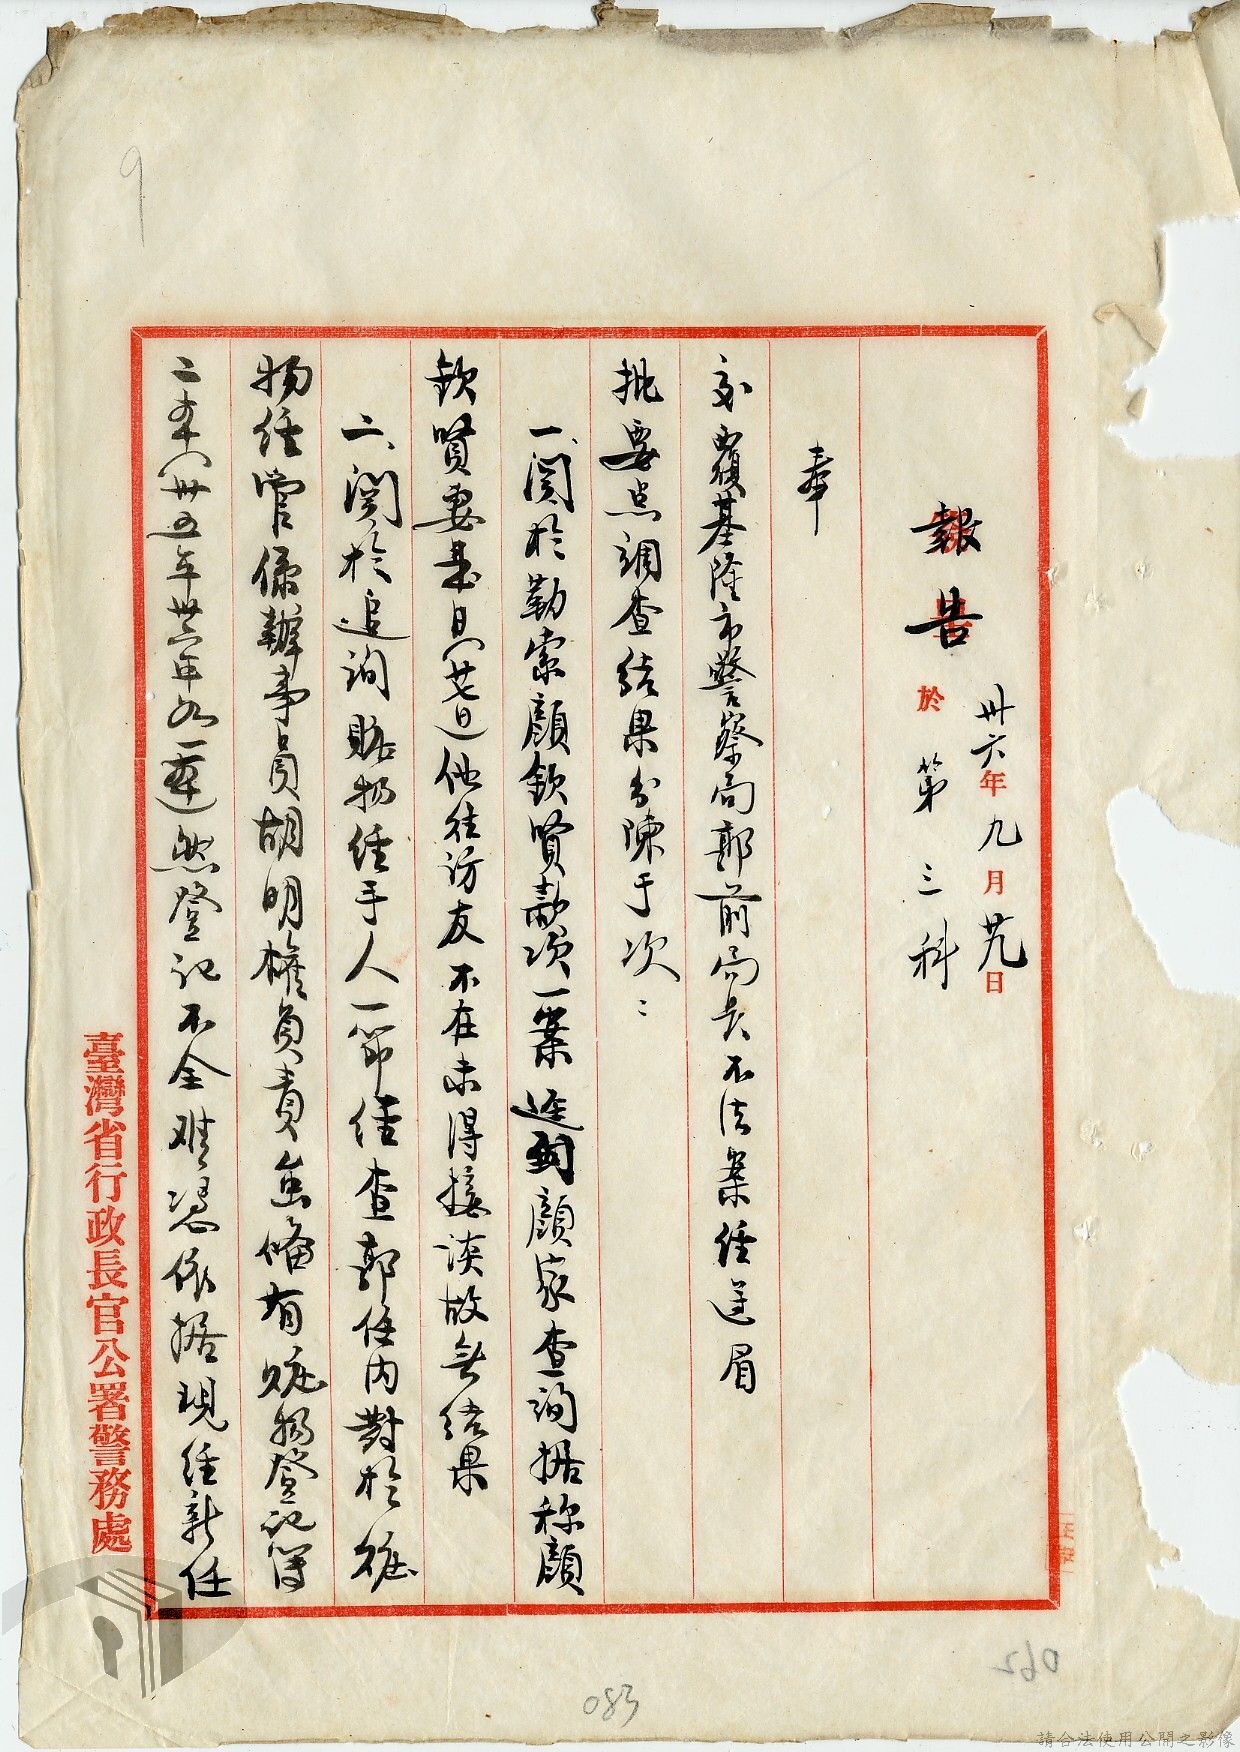 報告
卅六年九月廿九日
於第三科
奉
交覆基隆市警察局郭前局長不法案經送眉
批要点調查結果分陳于次：
一、関於勒索顏欽賢款項一案迳到顏家查詢据称顏
欽賢妻是日（廿七日）他往访友不在未得接談故無结果
二、関於追詢賍物經手人一节經查郭任内對於賍
物經管係辦事員胡明權負責並備有賍物登记簿
二本（卅五年卅六年各一本）惟登记不全难凭依据現經新任
臺灣省行政長官公署警務處
9
083
062
請合法使用公開之影像